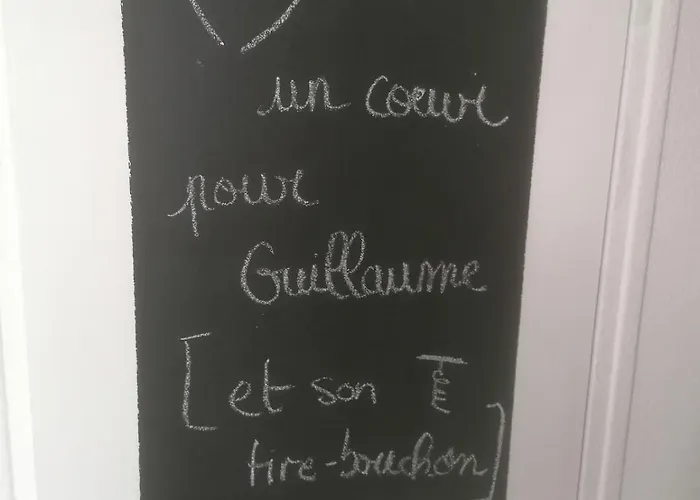 un coeur
pour
Guillaume
[et son
tire-bouchon]